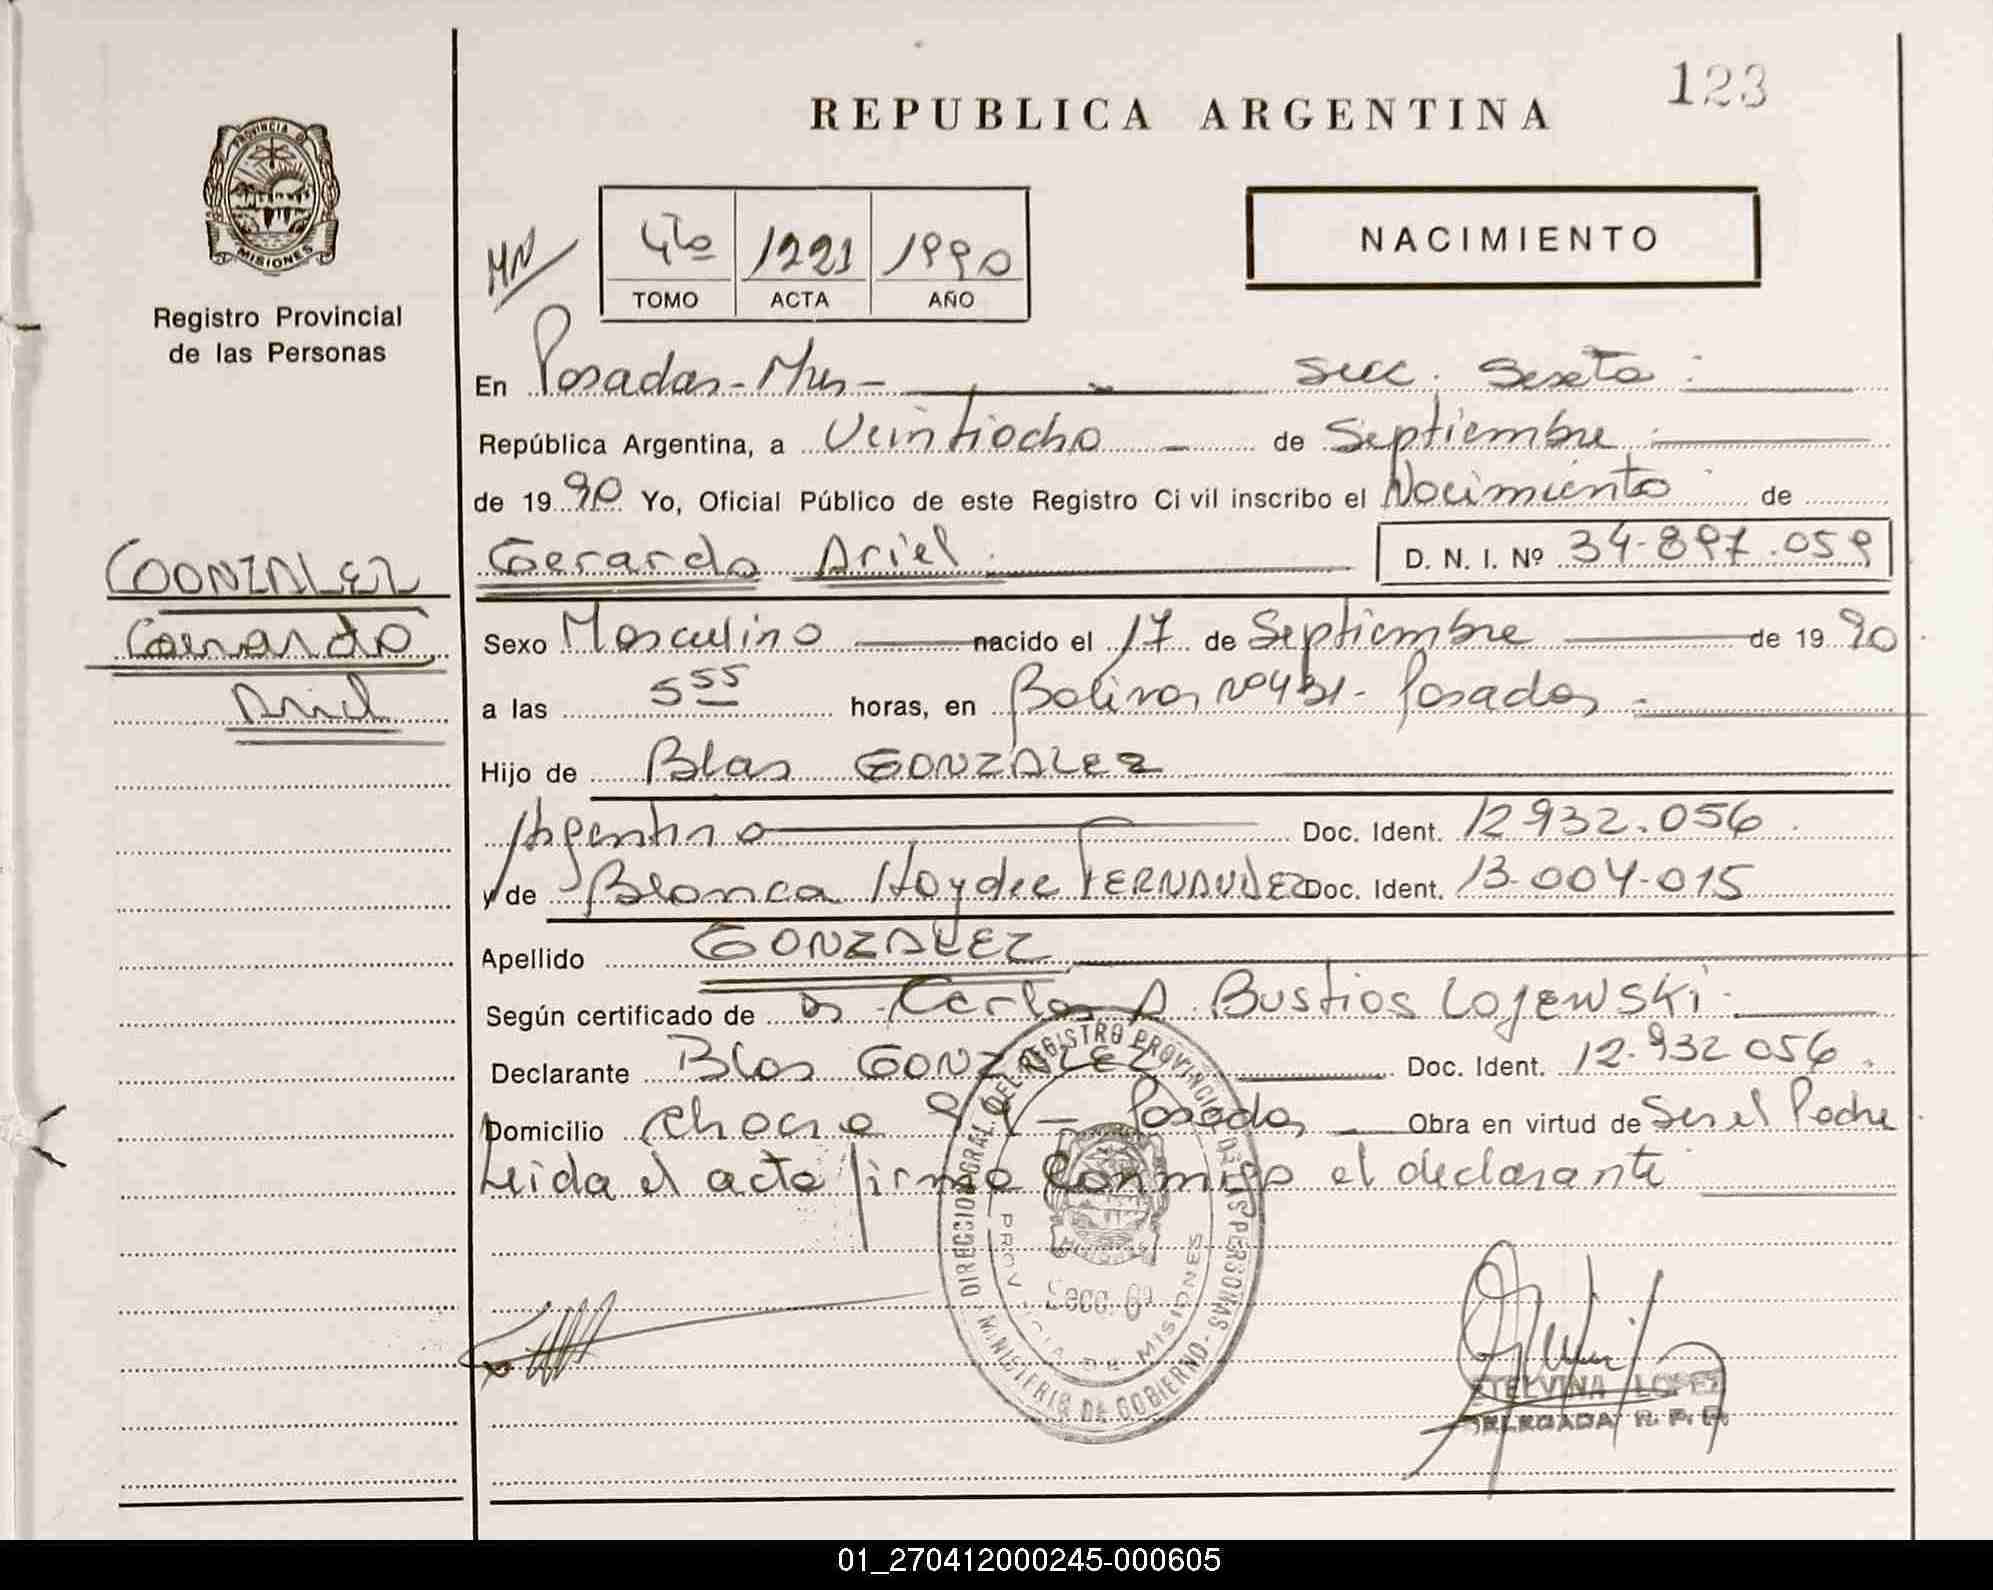 123
REPUBLICA ARGENTINA
PROVINCIA D
MISIONES
Registro Provincial
de las Personas
NACIMIENTO
4to 1221 1990
TOMO ACTA AÑO
En Posadas - Mnes - Secc. Sexta
República Argentina, a Veintiocho de Septiembre
de 1990 Yo, Oficial Público de este Registro Civil inscribo el Nacimiento de
GONZALEZ
Gerardo
Ariel
Gerardo Ariel D. N. I. Nº 34.897.059
Sexo Masculino nacido el 17 de Septiembre de 1990
a las 5 55 horas, en Bolivar Nº 431 - Posadas
Hijo de Blas GONZALEZ
Argentino Doc. Ident. 12.932.056
y de Blanca Haydee FERNANDEZ Doc. Ident. 13.004.015
Apellido GONZALEZ
Según certificado de Dr Carlos A Bustios Lojewski
Declarante Blas GONZALEZ Doc. Ident. 12.932 056
Domicilio Chacra - Posadas Obra en virtud de Ser el Padre
Leida el acta firma conmigo el declarante
DIRECCION GRAL. DEL REGISTRO PROVINCIAL DE LAS PERSONAS
MINISTERIO DE GOBIERNO
PROVINCIA DE MISIONES
Secc. 6ª
ETELVINA LOPEZ
DELEGADA R. P. P.
01_270412000245-000605